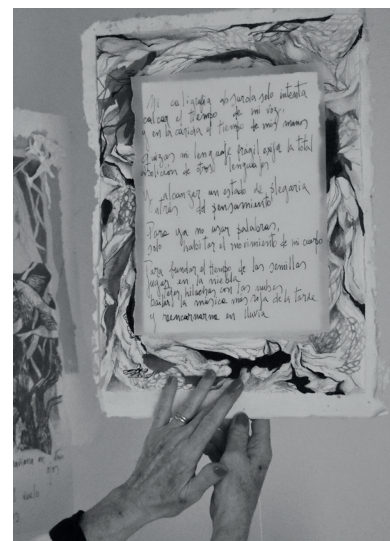 Mi caligrafía absurda solo intenta
calcar el tiempo de mi voz,
y en la caricia el tiempo de mis manos
Quizás mi lenguaje frágil exija la total
abolición de otros lenguajes
Y alcanzar un estado de plegaria
atrás del pensamiento
Para ya no usar palabras,
solo habitar el movimiento de mi cuerpo
Para fundar el tiempo de las semillas
jugar en la niebla
hilachas con las nubes,
bailar la música más roja de la tarde
y reencarnarme en lluvia